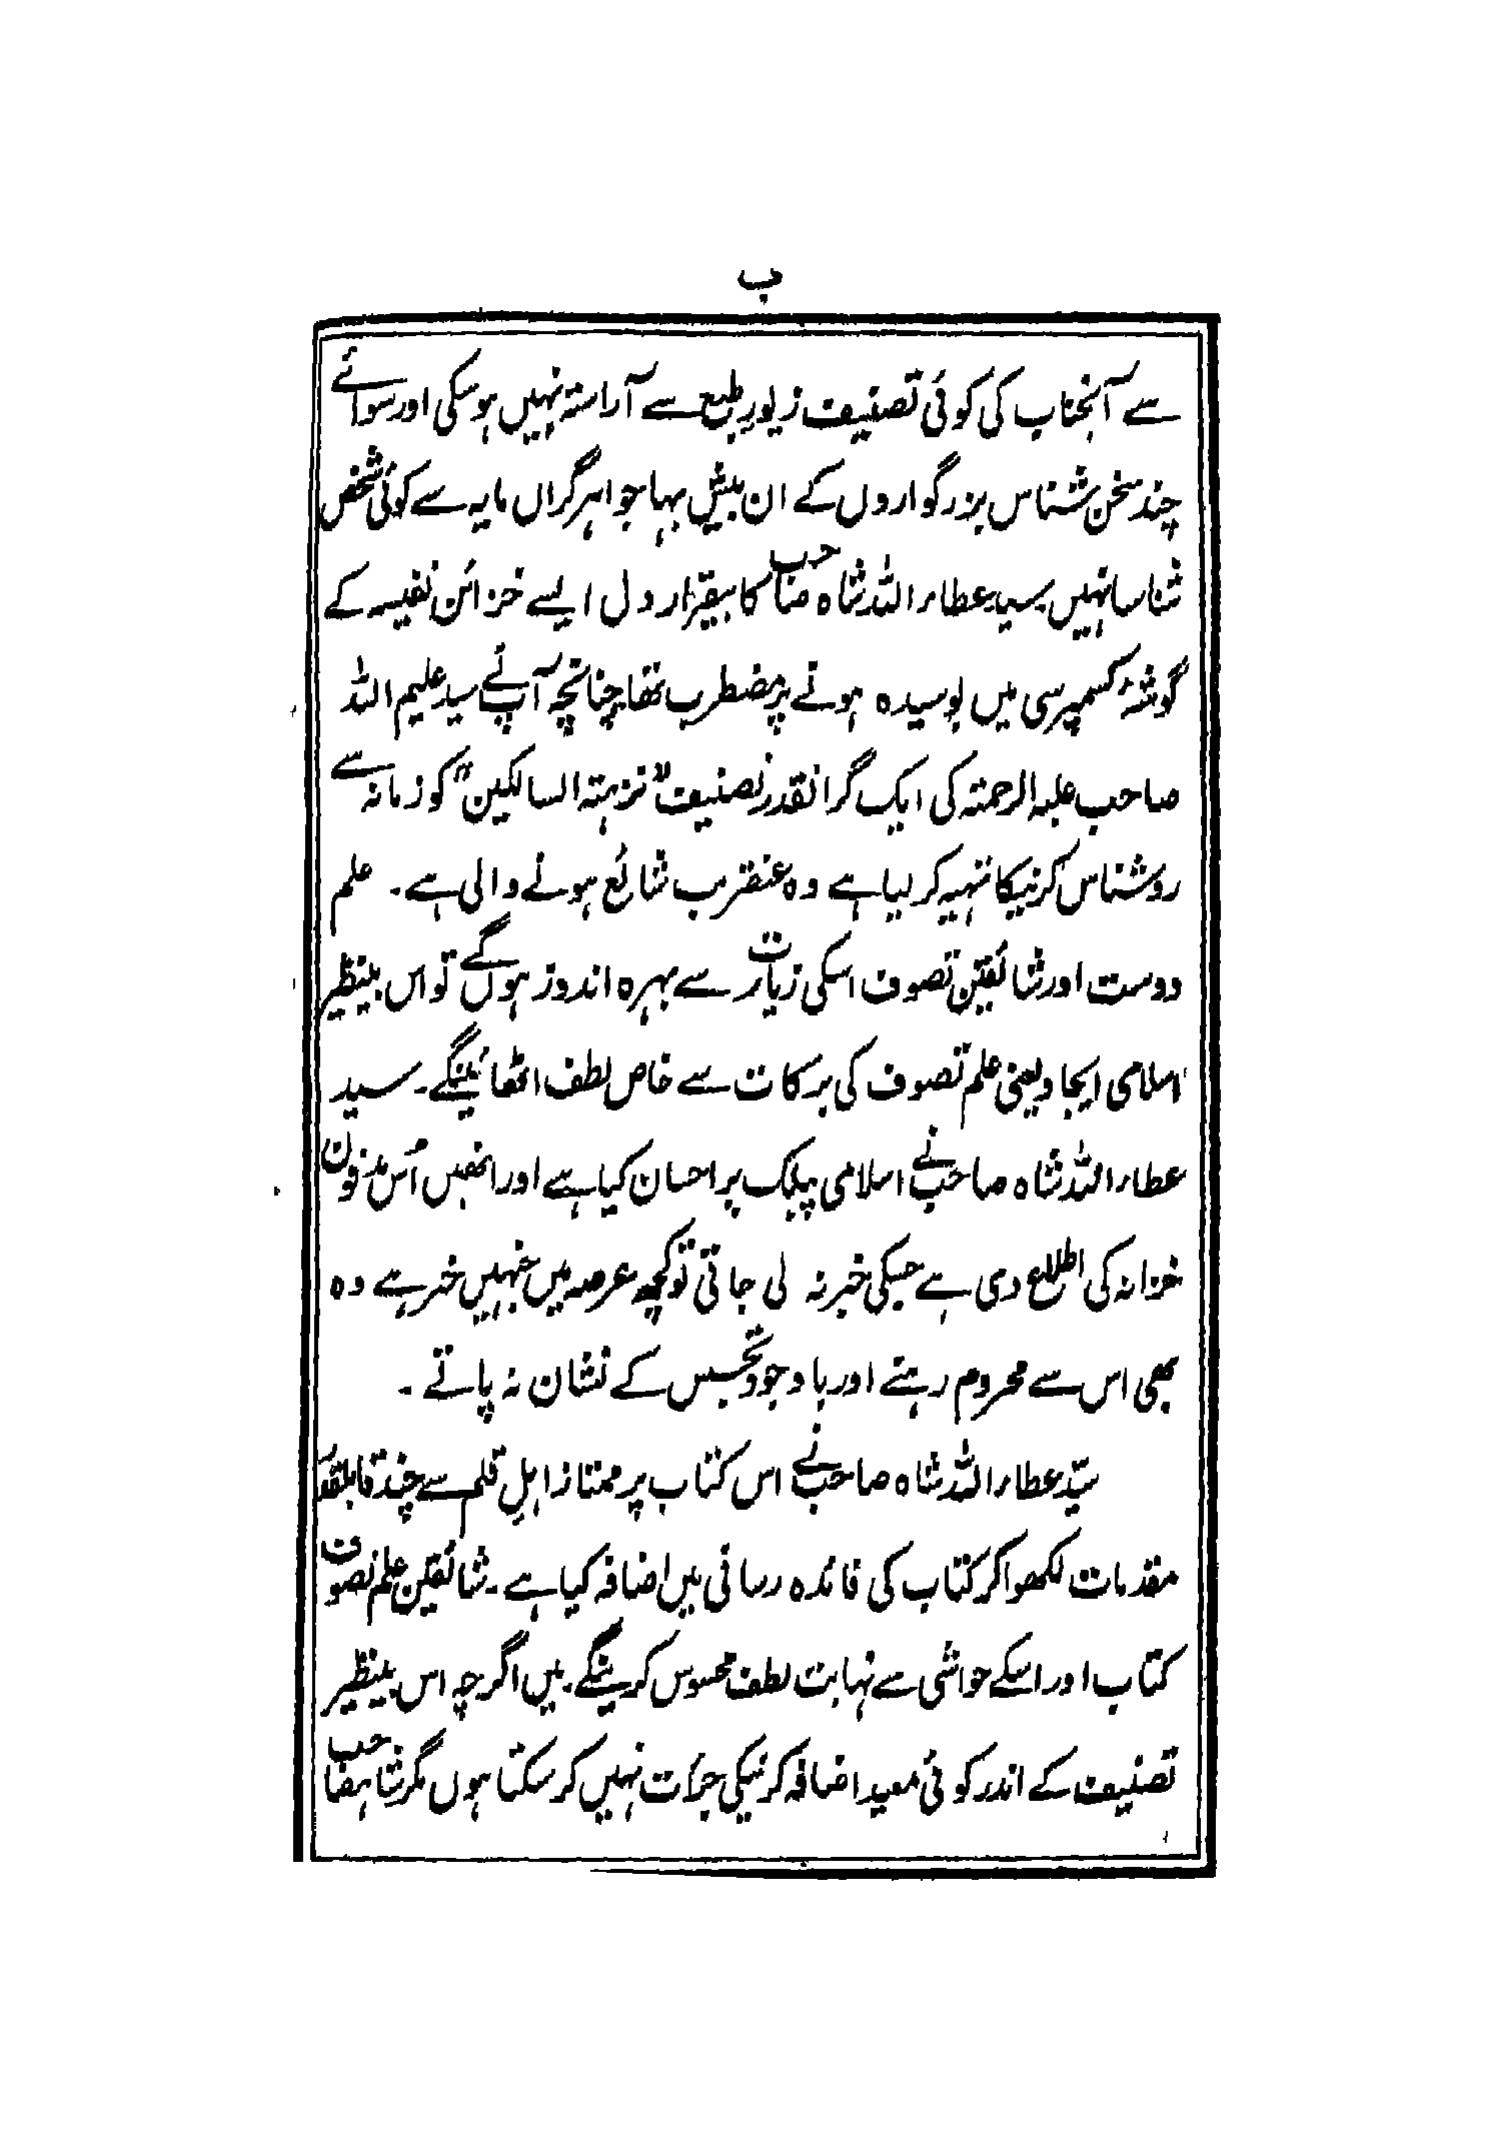 ب
سے آنجناب کی کوئی تصنیف زیورِ طبع سے آراستہ نہیں ہو سکی اور سوائے
چند سخن شناس بزرگواروں کے ان بیش بہا جواہر گراں مایہ سے کوئی شخص
شناسا نہیں سید عطاء اللہ شاہ صاحب کا بیقرار دل ایسے خزائن نفیسہ کے
گوشۂ کسمپرسی میں بوسیدہ ہونے پر مضطرب تھا چنانچہ آپنے سید علیم اللہ
صاحب علیہ الرحمتہ کی ایک گرانقدر تصنیف "نزہتہ السالکین" کو زمانہ سے
روشناس کرنیکا تہیہ کر لیا ہے وہ عنقریب شائع ہونے والی ہے۔ علم
دوست اور شائقین تصوف اسکی زیارت سے بہرہ اندوز ہوں گے تو اس بینظیر
اسلامی ایجاد یعنی علم تصوف کی برکات سے خاص لطف اٹھائینگے۔ سید
عطاء اللہ شاہ صاحب نے اسلامی پبلک پر احسان کیا ہے اور انھیں اُس مدفون
خزانہ کی اطلاع دی ہے جسکی خبر نہ لی جاتی تو کچھ عرصہ میں جنہیں خبر ہے وہ
بھی اس سے محروم رہتے اور باوجود تجسس کے نشان نہ پاتے ۔
سیّد عطاء اللہ شاہ صاحب نے اس کتاب پر ممتاز اہلِ قلم سے چند قابلقدر
مقدمات لکھوا کر کتاب کی فائدہ رسانی میں اضافہ کیا ہے ۔ شائقین علم تصوف
کتاب اور اسکے حواشی سے نہایت لطف محسوس کرینگے۔ میں اگرچہ اس بینظیر
تصنیف کے اندر کوئی مفید اضافہ کرنیکی جرأت نہیں کر سکتا ہوں مگر شاہصاحب